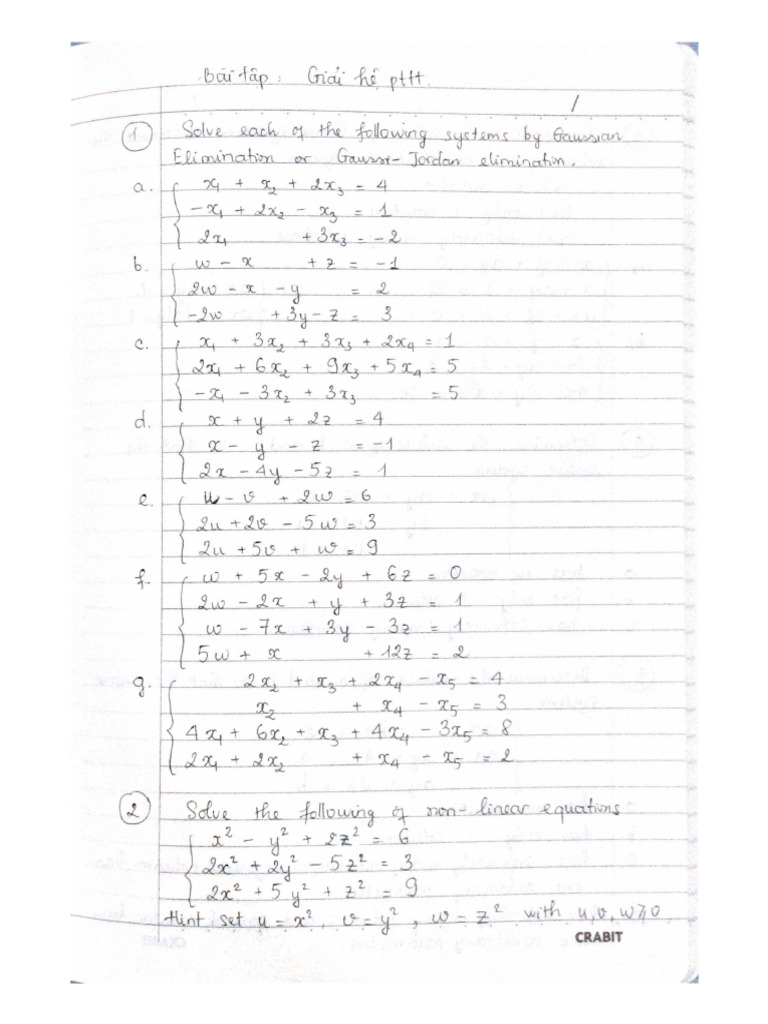 Bài tập : Giải hệ pttt.
1 Solve each of the following systems by Gaussian
Elimination or Gauss-Jordan elimination.
a. x₁ + x₂ + 2x₃ = 4
-x₁ + 2x₂ - x₃ = 1
2x₁ + 3x₃ = -2
b. w - x + z = -1
2w - x - y = 2
-2w + 3y - z = 3
c. x₁ + 3x₂ + 3x₃ + 2x₄ = 1
2x₁ + 6x₂ + 9x₃ + 5x₄ = 5
-x₁ - 3x₂ + 3x₃ = 5
d. x + y + 2z = 4
x - y - z = -1
2x - 4y - 5z = 1
e. u - v + 2w = 6
2u + 2v - 5w = 3
2u + 5v + w = 9
f. w + 5x - 2y + 6z = 0
2w - 2x + y + 3z = 1
w - 7x + 3y - 3z = 1
5w + x + 12z = 2
g. 2x₂ + x₃ + 2x₄ - x₅ = 4
x₂ + x₄ - x₅ = 3
4x₁ + 6x₂ + x₃ + 4x₄ - 3x₅ = 8
2x₁ + 2x₂ + x₄ - x₅ = 2
2 Solve the following of non-linear equations
x² - y² + 2z² = 6
2x² + 2y² - 5z² = 3
2x² + 5y² + z² = 9
Hint set u = x², v = y², w = z² with u,v,w ⩾ 0
CRABIT